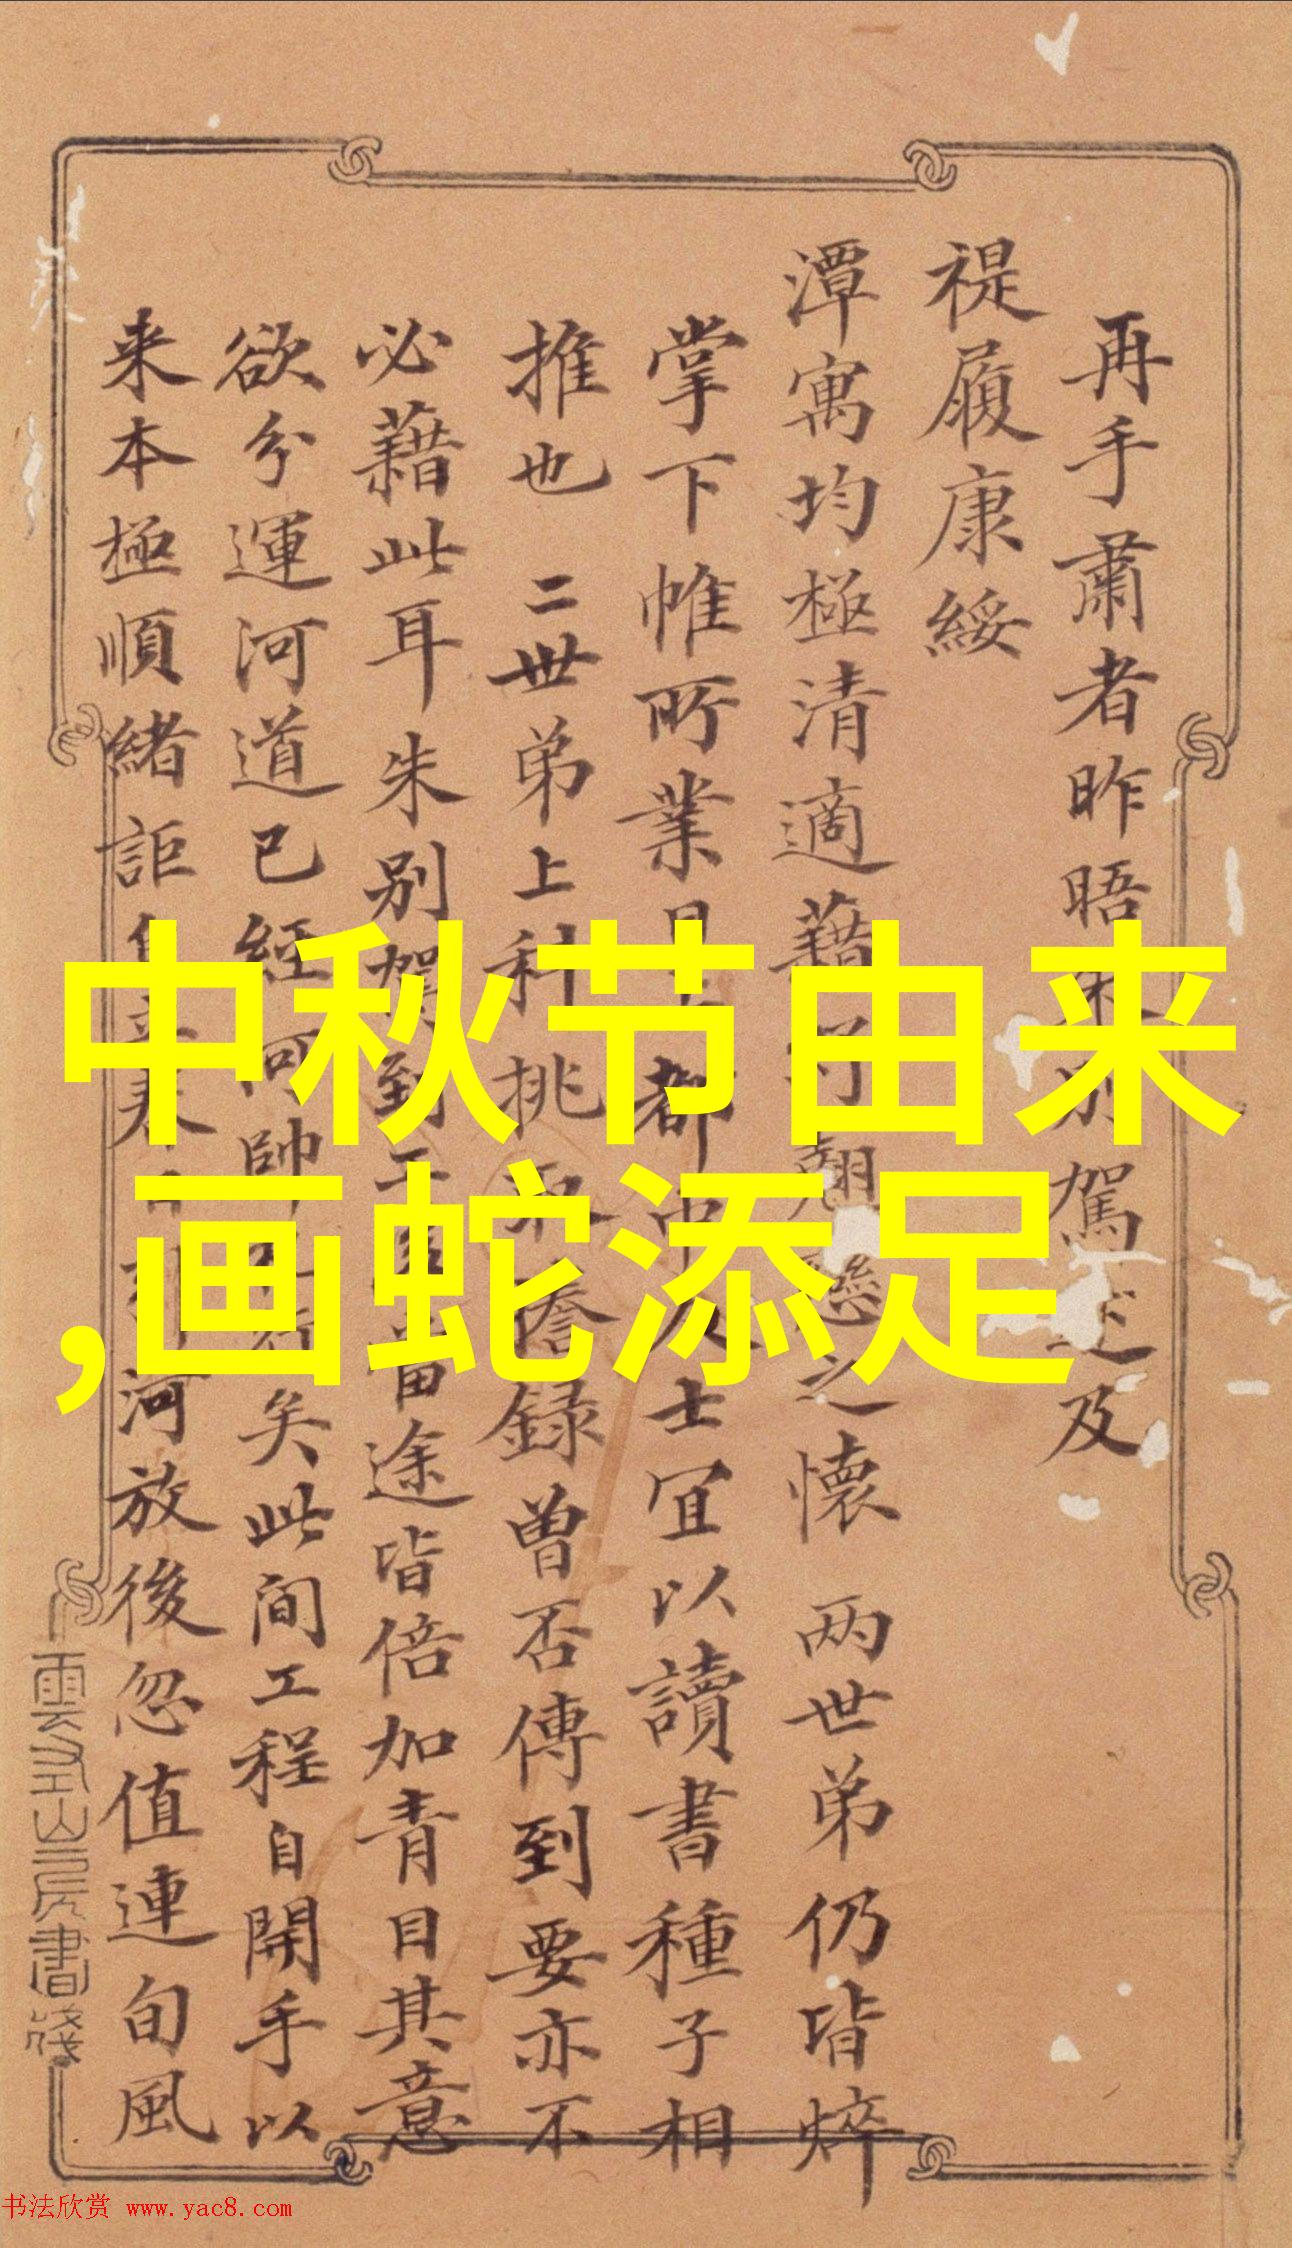 再手肅者昨晤朱別駕述及
禔履康綏
潭寓均極清適藉 翹戀之懷 两世弟仍皆焠
掌下帷所業 都中人士宜以讀書種子相
推也 二世弟上科挑取謄錄曾否傳到要亦不
必藉此耳朱別駕到工 當途皆倍加青目其意
欲分運河道已經河帥 矣此间工程自開手以
来本極順緒詎 河放後忽值連旬風
中秋节由来
,画蛇添足
書牋
书法欣赏 www.yac8.com